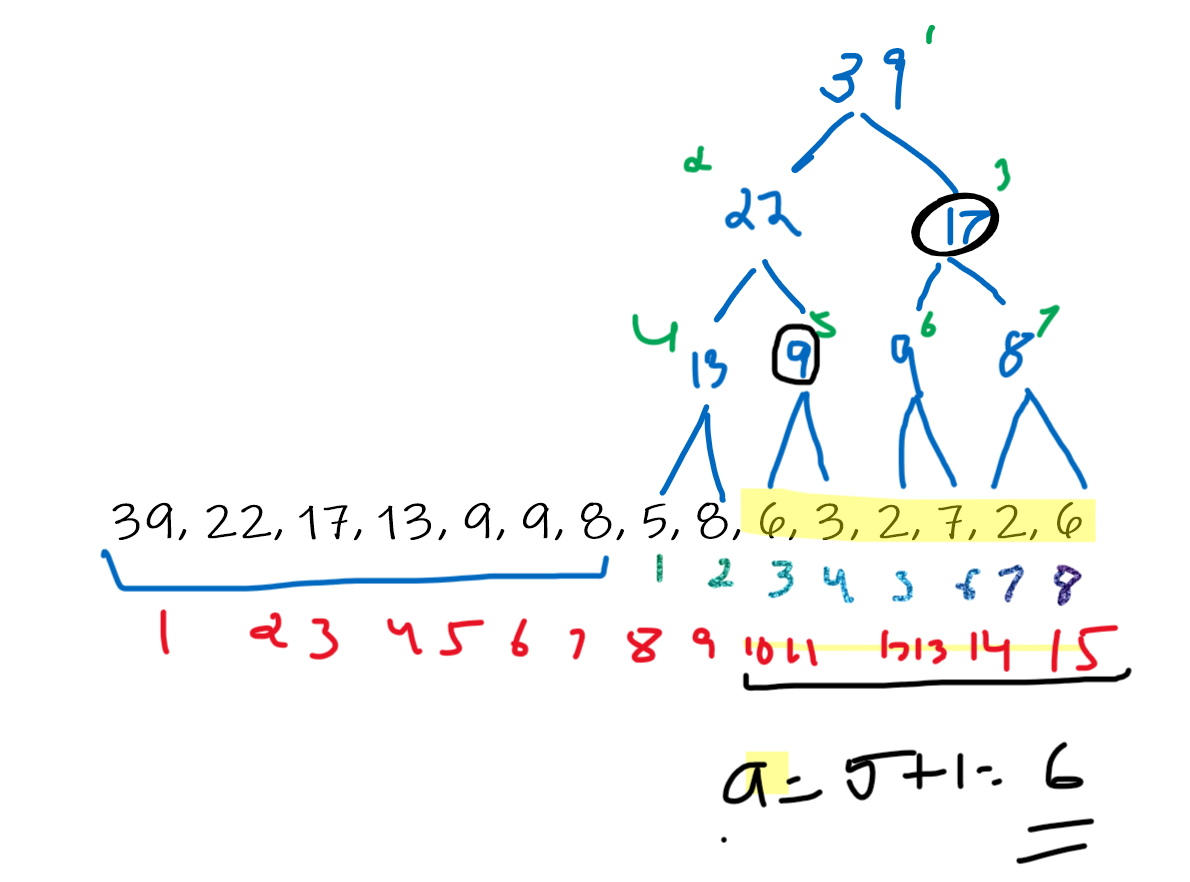 39 1
2 3
22 17
4 5 6 7
13 9 9 8
39, 22, 17, 13, 9, 9, 8, 5, 8, 6, 3, 2, 7, 2, 6
1 2 3 4 5 6 7 8
1 2 3 4 5 6 7 8 9 10 11 12 13 14 15
a = 5+1 = 6